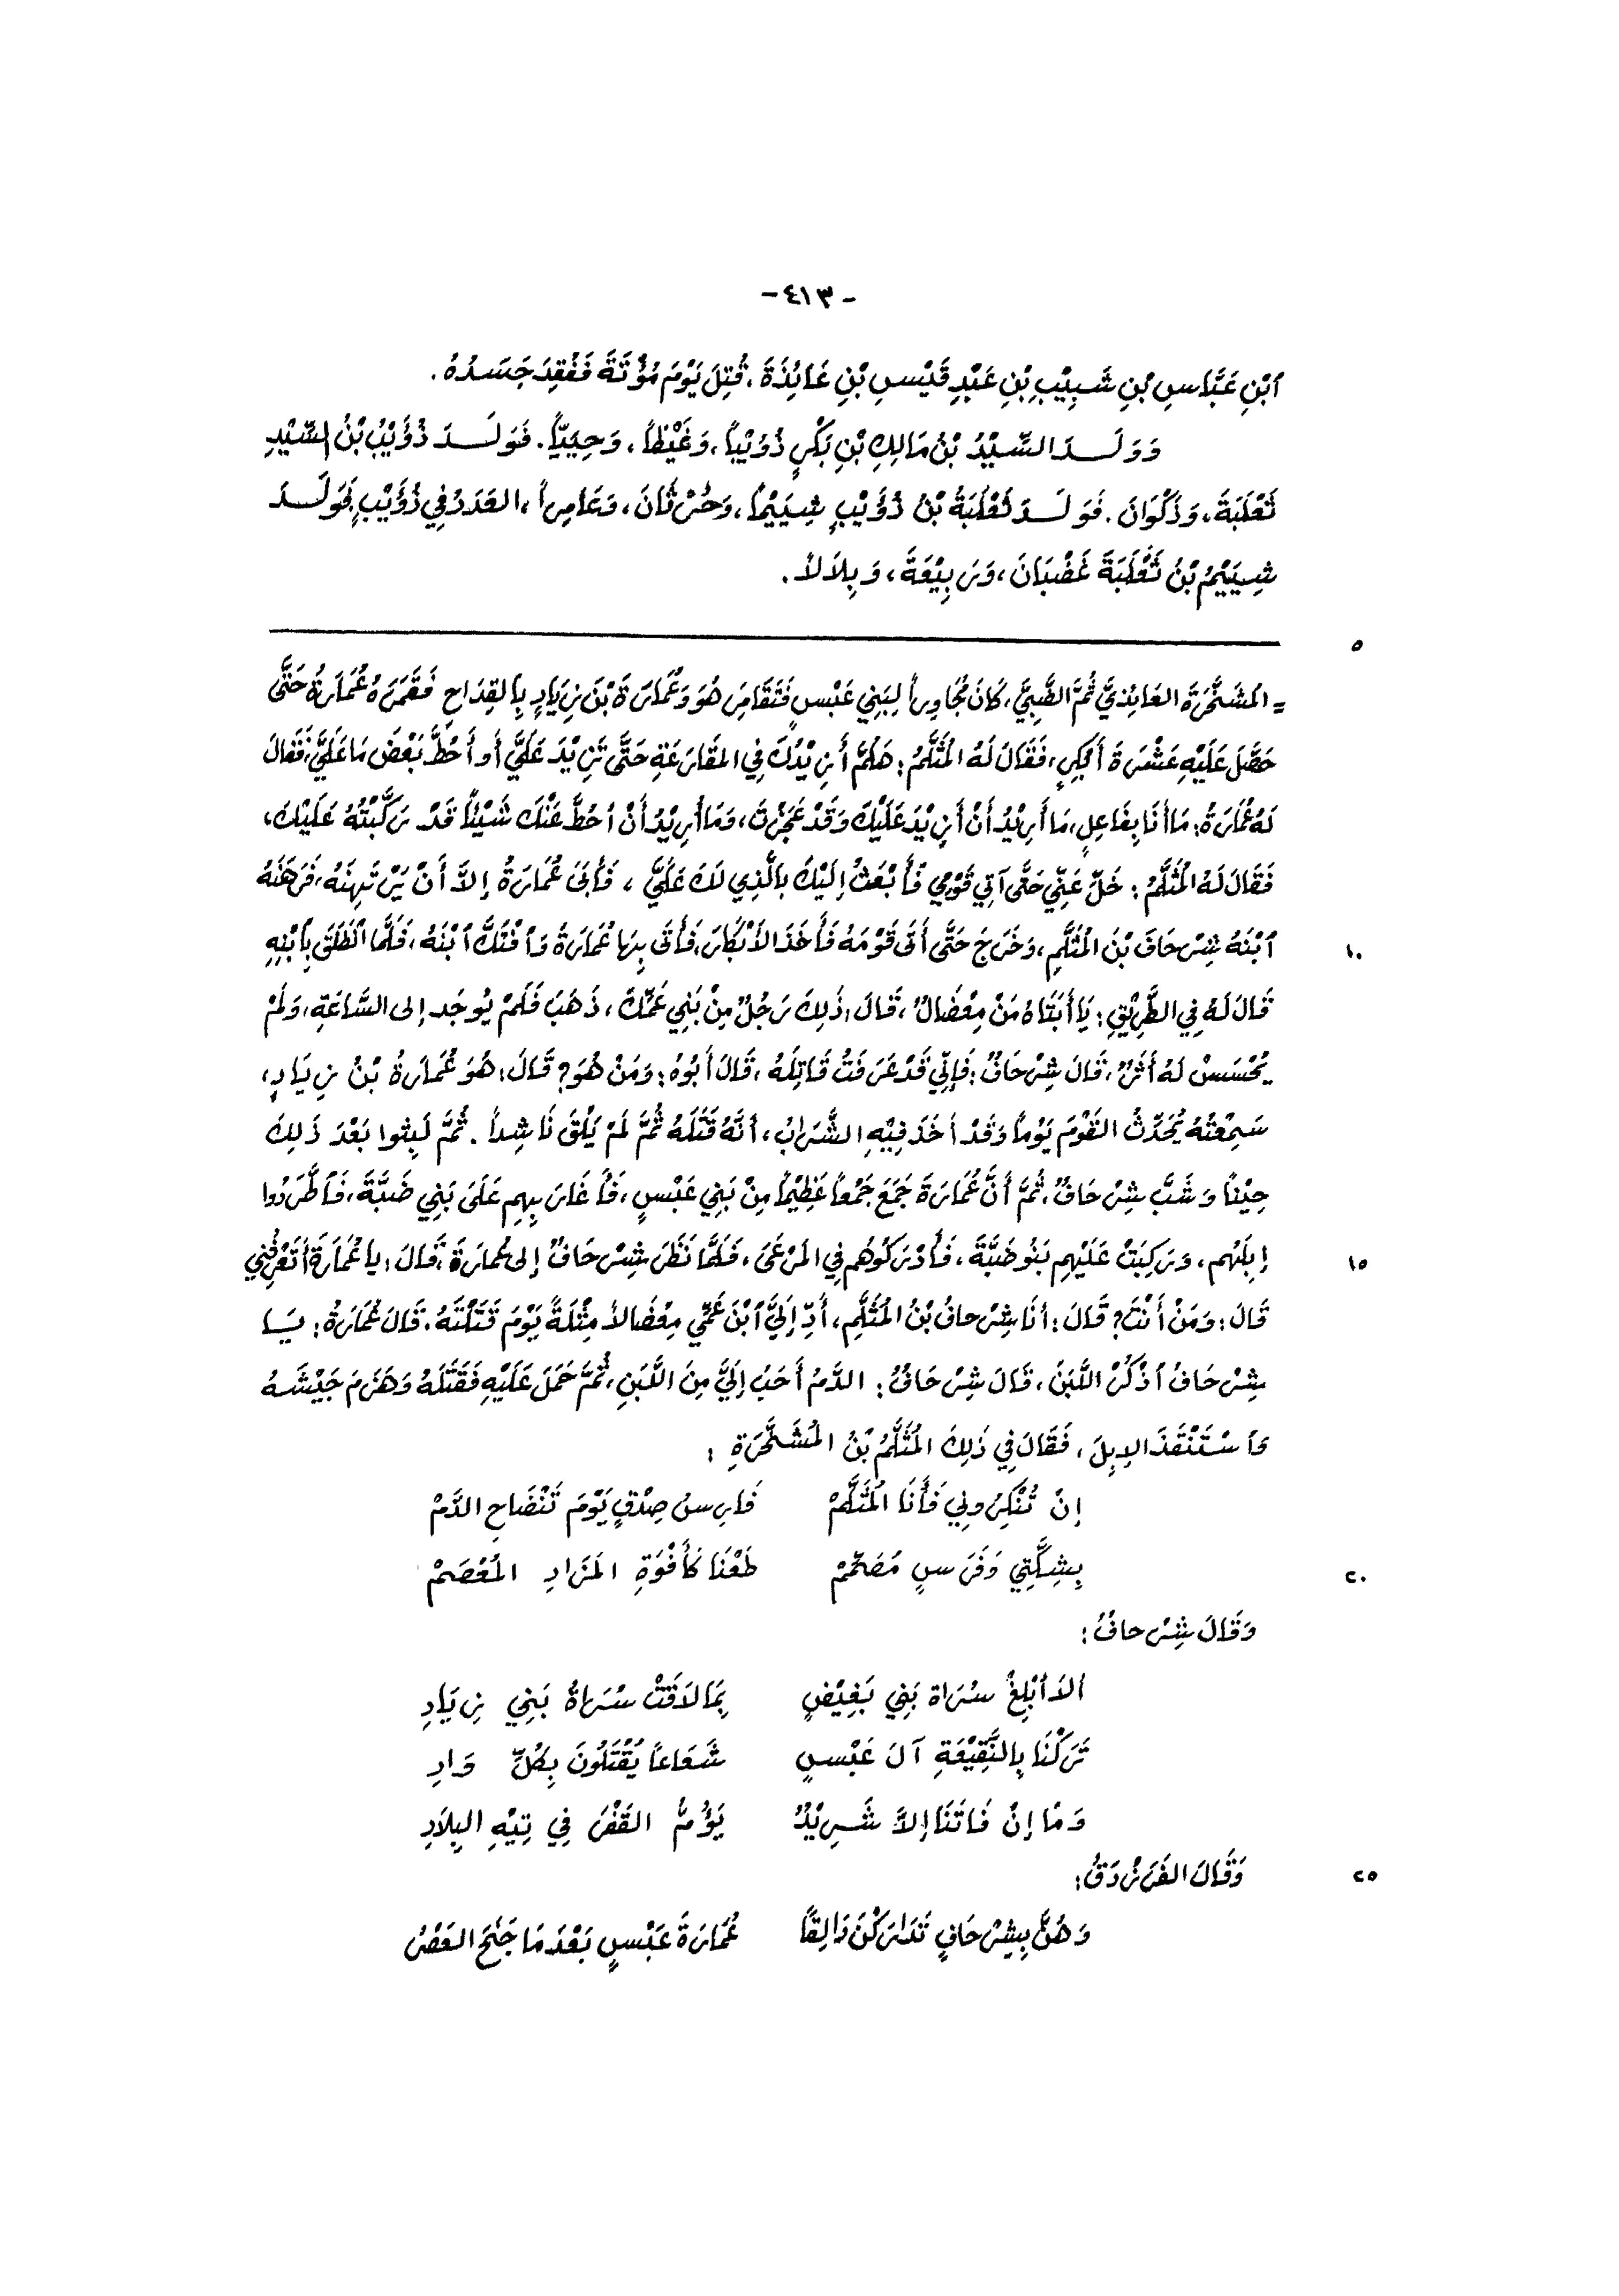 -٤١٣-
ٱبْنِ عَبَّاسِ بْنِ شَبِيْبِ بْنِ عَبْدِ قَيْسِ بْنِ عَائِذَةَ، قُتِلَ يَوْمَ مُؤْتَةَ فَفُقِدَ جَسَدُهُ.
وَوَلَدَ السِّيْدُ بْنُ مَالِكِ بْنِ بَكْرٍ ذُؤَيْباً، وَغَيْظاً، وَحِيَيّاً. فَوَلَدَ ذُؤَيْبُ بْنُ السِّيْدِ
ثَعْلَبَةَ، وَذَكْوَانَ. فَوَلَدَ ثَعْلَبَةُ بْنُ ذُؤَيْبٍ شِيَيْماً، وَحُرْثَانَ، وَعَامِراً، العَدَدُ فِي ذُؤَيْبٍ. فَوَلَدَ
شِيَيْمُ بْنُ ثَعْلَبَةَ غَضْبَانَ، وَرَبِيْعَةَ، وَبِلَالاً.
٥
= المُشَخَّرَةَ العَائِذِيَّ ثُمَّ الضَّبِيَّ، كَانَ مُجَاوِراً لِبَنِي عَبْسٍ فَتَقَامَرَ هُوَ وَعُمَارَةَ بْنَ زِيَادٍ بِالقِدَاحِ فَقَمَرَهُ عُمَارَةُ حَتَّى
حَصَّلَ عَلَيْهِ عَشْرَةَ أَبْكِرٍ، فَقَالَ لَهُ المُثَلَّمُ: هَلُمَّ أَزِيْدُكَ فِي المقَارَعَةِ حَتَّى تَزِيْدَ عَلَيَّ أَو أَحُطَّ بَعْضَ مَا عَلَيَّ، فَقَالَ
لَهُ عُمَارَةُ: مَا أَنَا بِفَاعِلٍ، مَا أُرِيْدُ أَنْ أَزِيْدَ عَلَيْكَ وَقَدْ عَجَزْتَ، وَمَا أُرِيْدُ أَنْ أَحُطَّ عَنْكَ شَيْئاً قَدْ رَكَّبْتُهُ عَلَيْكَ،
فَقَالَ لَهُ المُثَلَّمُ: خَلِّ عَنِّي حَتَّى آتِي قَوْمِي فَأَبْعَثُ إِلَيْكَ بِالَّذِي لَكَ عَلَيَّ، فَأَبَى عُمَارَةُ إِلاَّ أَنْ يَرْتَهِنَهُ، فَرَهَنَهُ
ٱبْنَهُ شِرْحَافَ بْنَ المُثَلَّمِ، وَخَرَجَ حَتَّى أَتَى قَوْمَهُ فَأَخَذَ الأَبْكَارَ، فَأَتَى بِهَا عُمَارَةُ وَٱفْتَكَّ ٱبْنَهُ، فَلَمَّا ٱنْطَلَقَ بِٱبْنِهِ
١٠
قَالَ لَهُ فِي الطَّرِيْقِ: يَا أَبَتَاهُ مَنْ مِعْضَالٌ، قَالَ: ذَلِكَ رَجُلٌ مِنْ بَنِي عَمِّكَ، ذَهَبَ فَلَمْ يُوجَد إلى السَّاعَةِ، وَلَمْ
يُحْسَسْ لَهُ أَثَرٌ، قَالَ شِرْحَافُ: فَإِنِّي قَدْ عَرَفْتُ قَاتِلَهُ، قَالَ أَبُوهُ: وَمَنْ هُوَ؟ قَالَ: هُوَ عُمَارَةُ بْنُ زِيَادٍ،
سَمِعْتُهُ يُحَدِّثُ القَوْمَ يَوْماً وَقَدْ أَخَذَ فِيْهِ الشَّرَابُ، أَنَّهُ قَتَلَهُ ثُمَّ لَمْ يَلْقَ نَاشِداً. ثُمَّ لَبِثُوا بَعْدَ ذَلِكَ
حِيْناً وَشَبَّ شِرْحَافُ، ثُمَّ أَنَّ عُمَارَةَ جَمَعَ جَمْعاً عَظِيْماً مِنْ بَنِي عَبْسٍ، فَأَغَارَ بِهِم عَلَى بَنِي ضَبَّةَ، فَٱطَّرَدُوا
إِبِلَهُم، وَرَكِبَتْ عَلَيْهِم بَنُو ضَبَّةَ، فَأَدْرَكُوهُم فِي المَرْعَى، فَلَمَّا نَظَرَ شِرْحَافُ إلى عُمَارَةَ، قَالَ: يا عُمَارَةُ أَتَعْرِفُنِي
١٥
قَالَ: وَمَنْ أَنْتَ؟ قَالَ: أَنَا شِرْحافُ بْنُ المُثَلَّمِ، أَدِّ إِلَيَّ ٱبْنَ عَمِّي مِعْضَالاً مِثْلَهُ يَوْمَ قَتَلْتَهُ. قَالَ عُمَارَةُ: يَا
شِرْحَافُ ٱذْكُرْ اللَّبَنَ، قَالَ شِرْحَافُ: الدَّمُ أَحَبُّ إِلَيَّ مِنَ اللَّبَنِ، ثُمَّ حَمَلَ عَلَيْهِ فَقَتَلَهُ وَهَزَمَ جَيْشَهُ
وَٱسْتَنْقَذَ الإِبِلَ، فَقَالَ فِي ذَلِكَ المُثَلَّمُ بْنُ المُشَخَّرَةِ:
إِنْ تُنْكِرُونِي فَأَنَا المُثَلَّمْ فَارِسُ صِدْقٍ يَوْمَ تَنْضَاحِ الدَّمْ
بِشِكَّتِي وَفَرَسٍ مُصَمِّمْ طَعْنَا كَأَفْوَةِ المَزَادِ المُعْصَمْ
٢٠
وَقَالَ شِرْحافُ:
أَلاَ أَبْلِغْ سَرَاة بَنِي بَغِيْضٍ بِمَا لاَقَتْ سَرَاةُ بَنِي زِيَادِ
تَرَكْنَا بِالنَّقِيْعَةِ آلَ عَبْسٍ شَعَاعاً يُقْتَلُونَ بِكُلِّ وَادِ
وَمَا إِنْ فَاتَنَا إِلاَّ شَرِيْدٌ يَؤُمُّ القَفْرَ فِي تِيْهِ البِلاَدِ
وَقَالَ الفَرَزْدَقُ:
٢٥
وَهُنَّ بِشِرْحَافٍ تَدَارَكْنَ دَالِقاً عُمَارَةَ عَبْسٍ بَعْدَ مَا جَنَحَ العَصْرُ